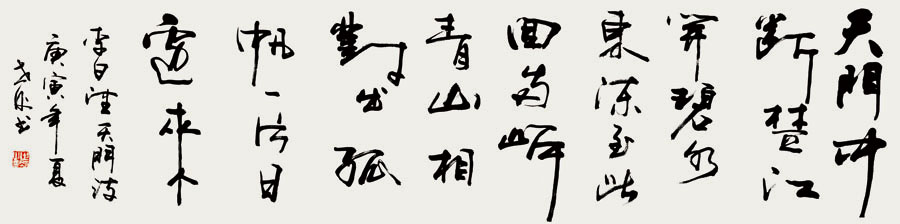 天門中
斷楚江
開碧水
東流至此
回两岸
青山相
對出孤
帆一片日
邊來
李白望天門诗
庚寅年夏
书